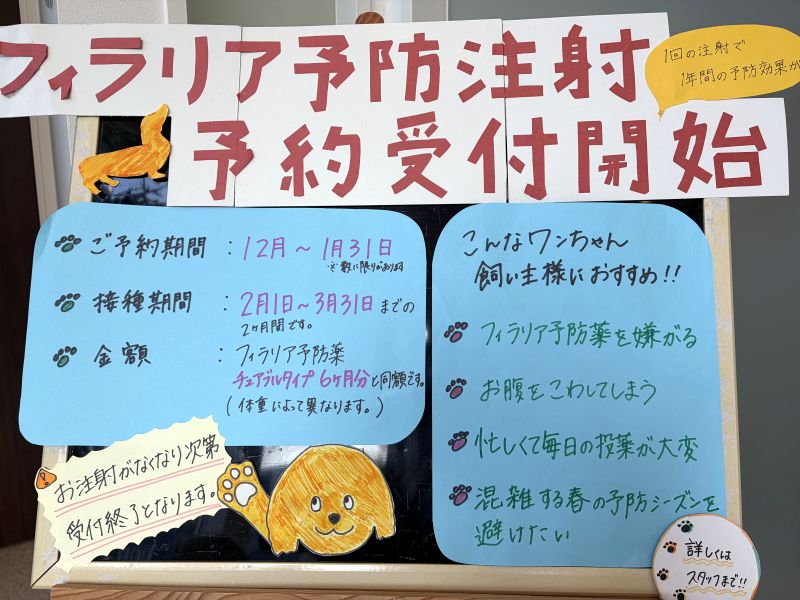 フィラリア予防注射
予約受付開始
1回の注射で
1年間の予防効果が
ご予約期間 : 12月～1月31日
※数に限りがあります
接種期間 : 2月1日～3月31日までの
2ヶ月間です。
金額 : フィラリア予防薬
チュアブルタイプ 6ヶ月分と同額です。
(体重によって異なります。)
お注射がなくなり次第
受付終了となります。
こんなワンちゃん
飼い主様におすすめ!!
フィラリア予防薬を嫌がる
お腹をこわしてしまう
忙しくて毎日の投薬が大変
混雑する春の予防シーズンを
避けたい
詳しくは
スタッフまで!!